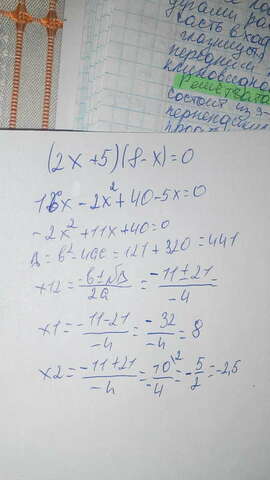 часть в ход
Решетчатая
состоит из
(2x+5)(8-x)=0
16x-2x²+40-5x=0
-2x²+11x+40=0
D=b²-4ac=121+320=441
x12=-b±√D/2a=-11±21/-4=
x1=-11-21/-4=-32/-4=8
x2=-11+21/-4=10\2/-4=-5/2=-2,5